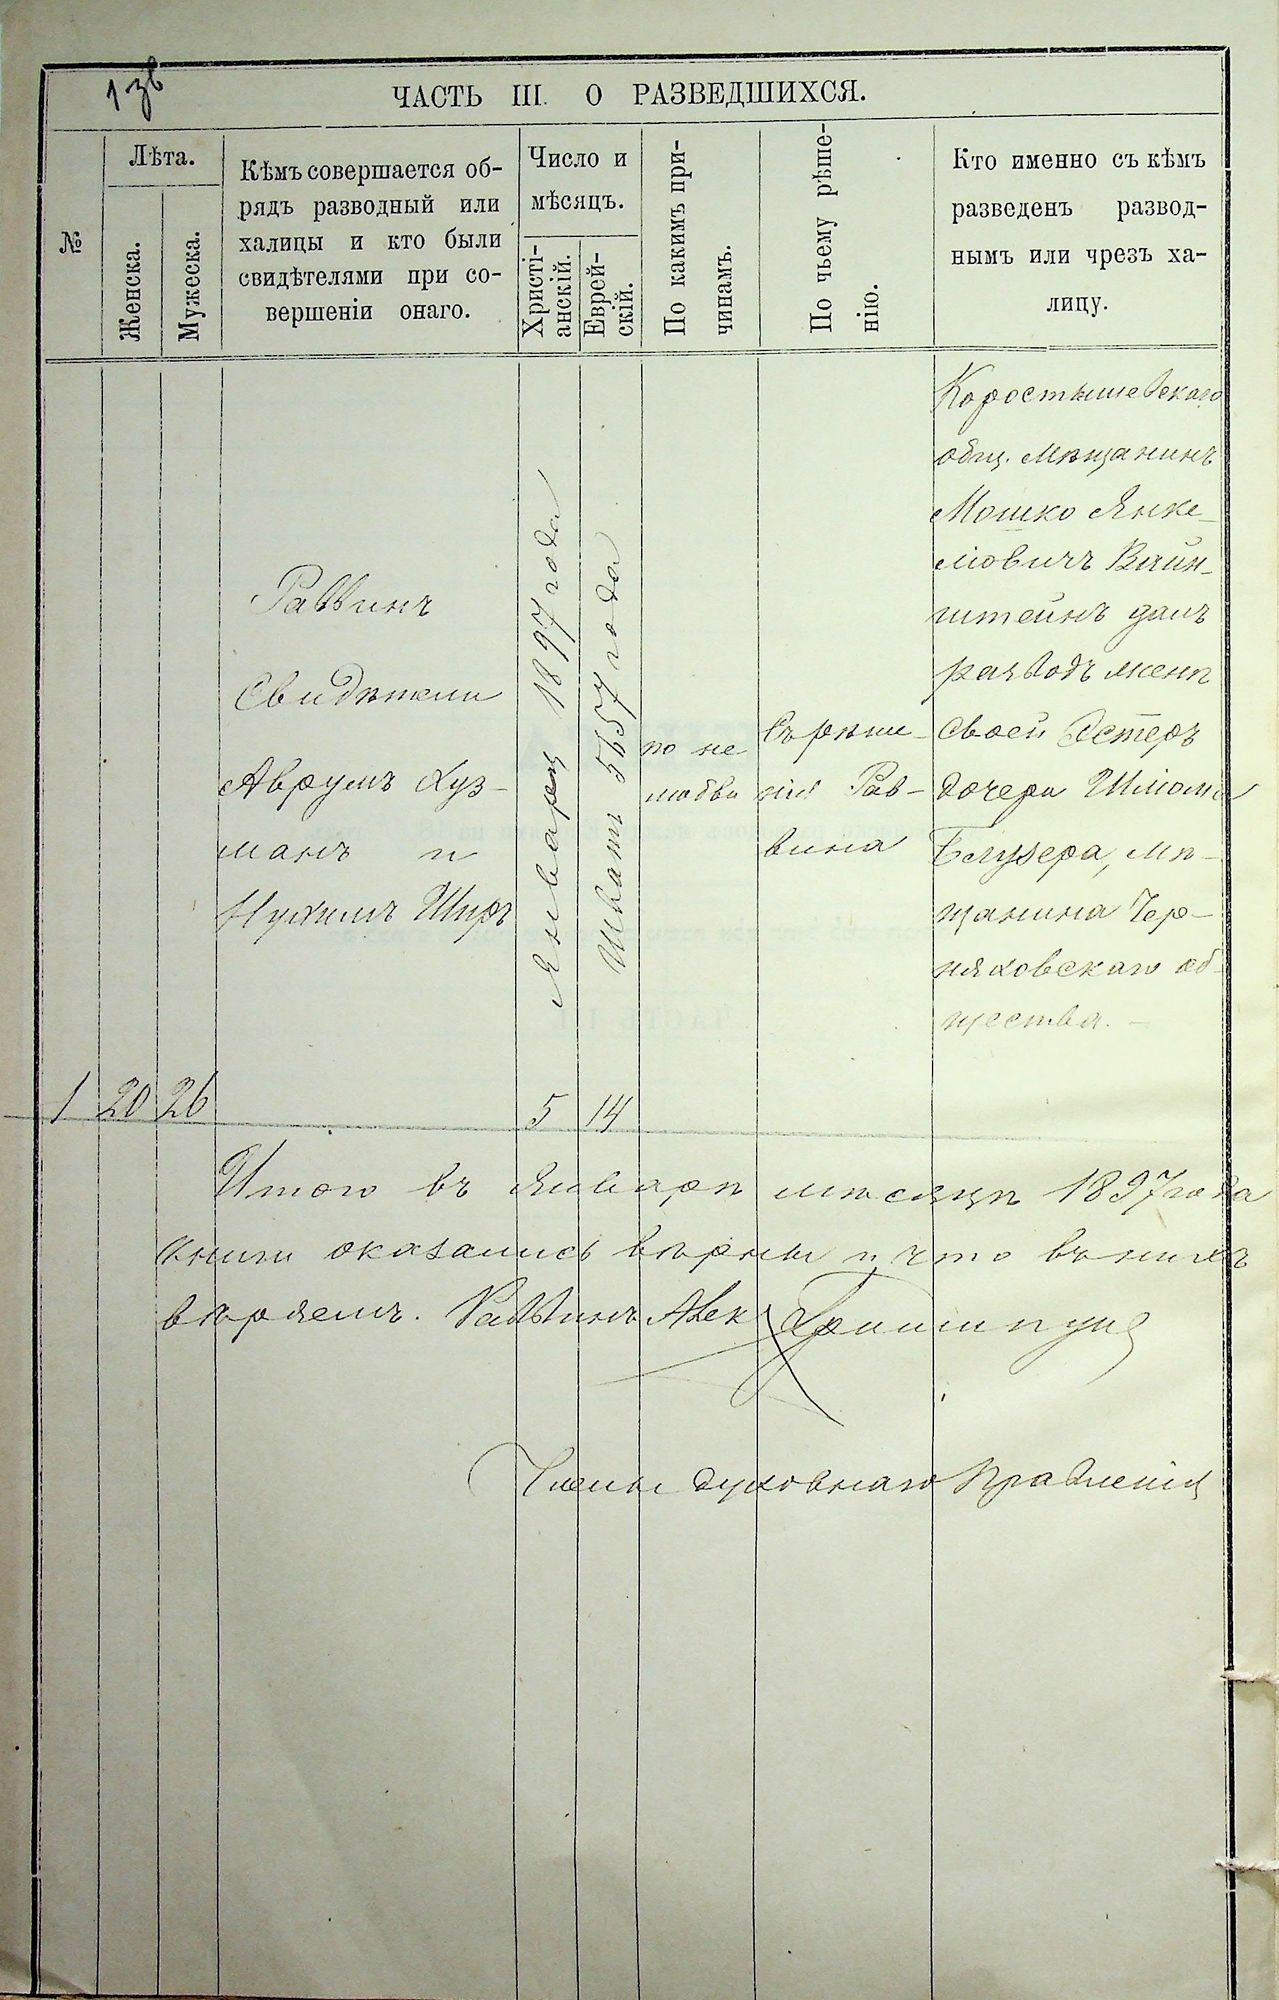 ЧАСТЬ III. О РАЗВЕДШИХСЯ.
№
Лѣта.
Женска.
Мужеска.
Кѣмъ совершается об-
рядъ разводный или
халицы и кто были
свидѣтелями при со-
вершеніи онаго.
Число и
мѣсяцъ.
Христі-
анскій.
Еврей-
скій.
По какимъ при-
чинамъ.
По чьему рѣше-
нію.
Кто именно съ кѣмъ
разведенъ развод-
нымъ или чрезъ ха-
лицу.
1
20
26
Раввинъ
Свидѣтели
Аврумъ Хуз-
манъ и
Нухимъ Ширъ
Января 1897 года
5
Шватъ 5657 года
14
по не
любви
Съ рѣше-
нія Рав-
вина
Коростышевскаго
общ. мѣщанинъ
Мошко Янке-
лѣовичъ Вайн-
штейнъ далъ
разводъ женѣ
своей Эстеръ
дочери Шлёма
Блузера, мѣ-
щанина Чер-
няховскаго об-
щества. —
Итого въ Январѣ мѣсяцѣ 1897 года
книги оказались вѣрны и что въ нихъ
вѣряемъ. Раввинъ
Члены духовнаго Правленія